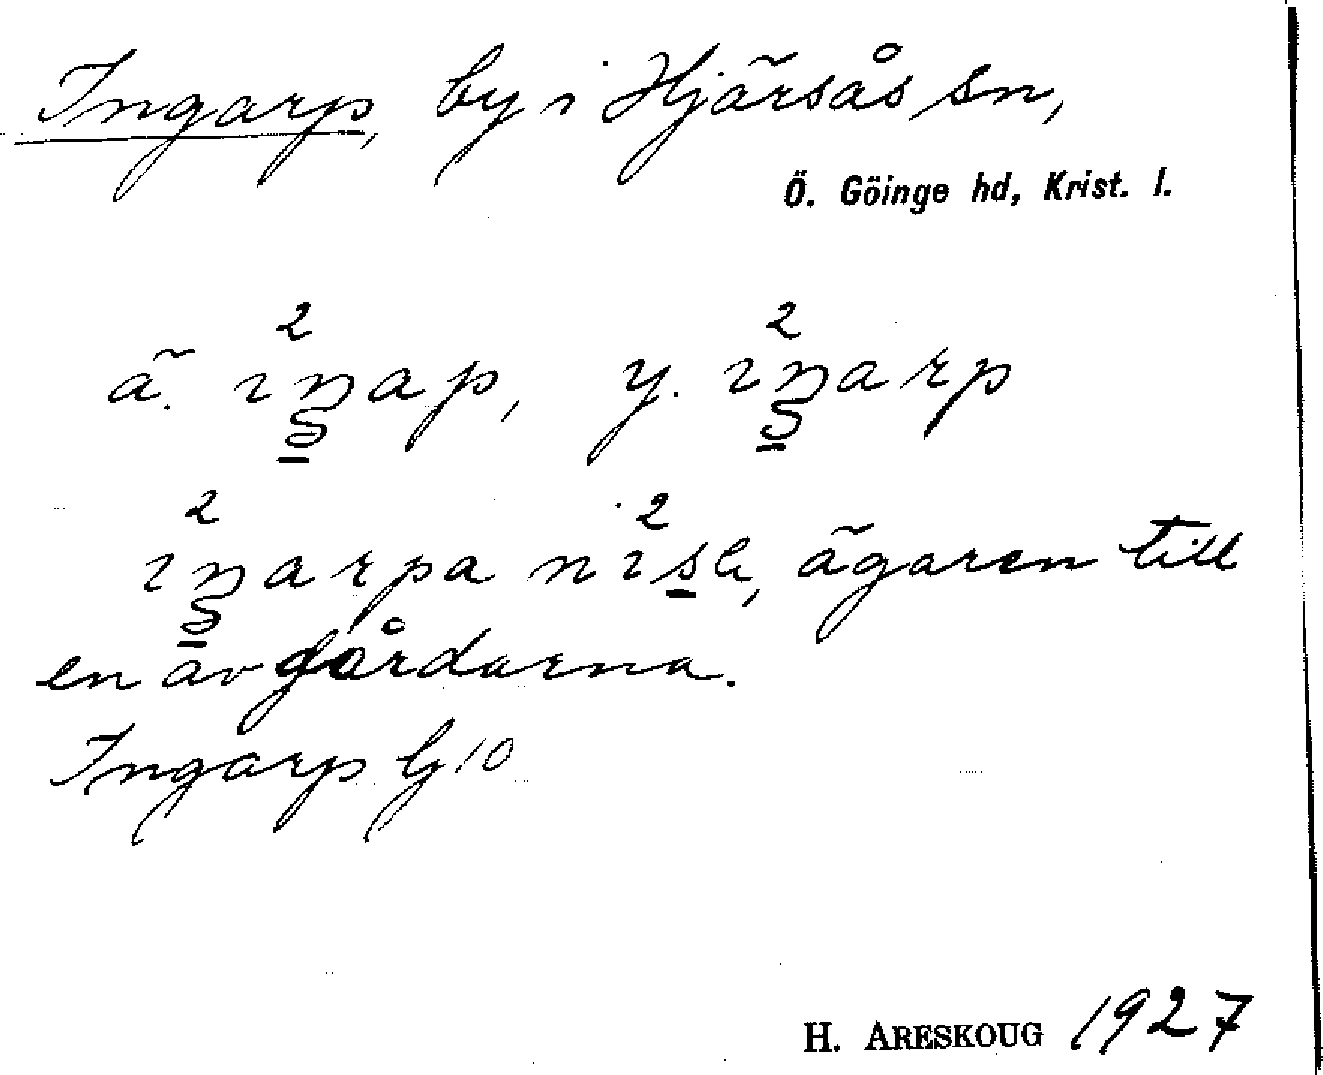 Ingarp, by i Hjärsås sn,
Ö. Göinge hd, Krist. l.
ä. 2ıŋap, y. 2ıŋarp
2ıŋarpa nı2sa, ägaren till
en av gårdarna.
Ingarp G 10
H. ARESKOUG 1927